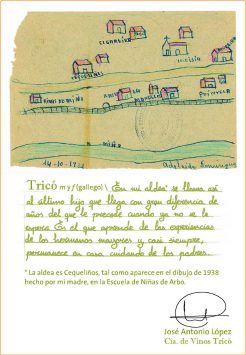 IGLESIA
MIÑO
14-10-1938
Adelaida Domínguez
Tricó m y f (gallego) \ En mi aldea* se llama así
al último hijo que llega con gran diferencia de
años del que le precede cuando ya no se le
espera. Es el que aprende de las experiencias
de los hermanos mayores y casi siempre,
permanece en casa cuidando de los padres.
* La aldea es Cequeliños, tal como aparece en el dibujo de 1938
hecho por mi madre, en la Escuela de Niñas de Arbo.
José Antonio López
Cía. de Vinos Tricó